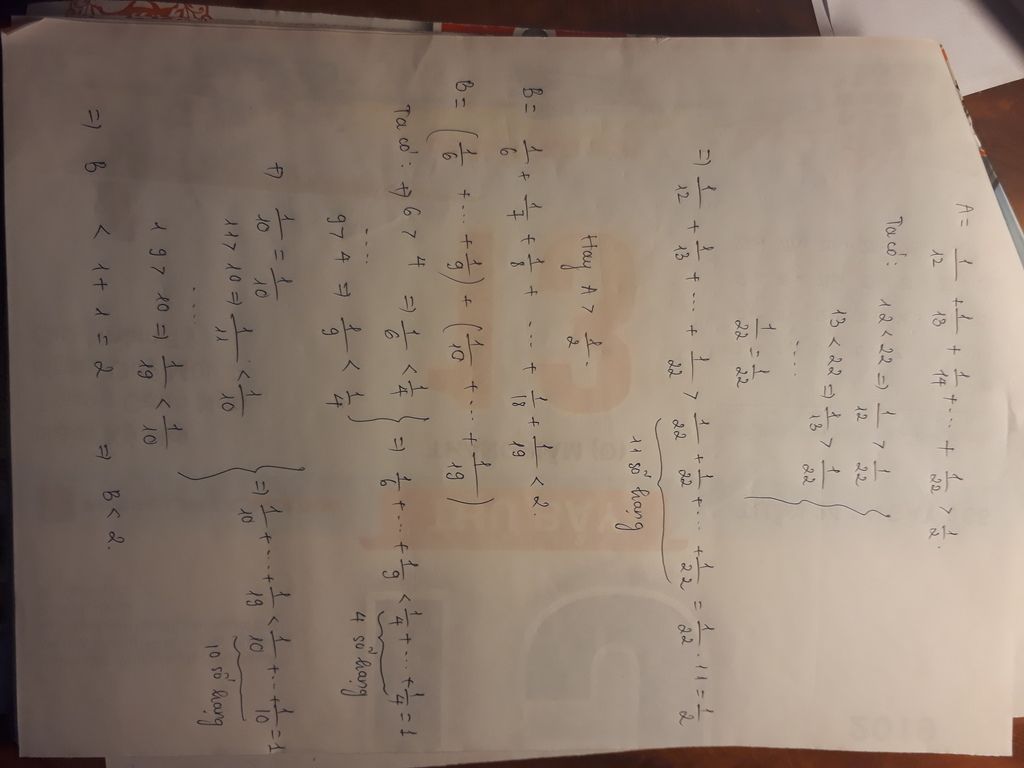 A = 1/12 + 1/13 + 1/14 + ... + 1/22 > 1/2.
Ta có: 12 < 22 => 1/12 > 1/22
13 < 22 => 1/13 > 1/22
....
1/22 = 1/22
=) 1/12 + 1/13 + ... + 1/22 > 1/22 + 1/22 + ... + 1/22 = 1/22 . 11 = 1/2
11 số hạng
Hay A > 1/2.
B = 1/6 + 1/7 + 1/8 + ... + 1/18 + 1/19 < 2.
B = (1/6 + ... + 1/9) + (1/10 + ... + 1/19)
Ta có: +) 6 > 4 => 1/6 < 1/4
....
9 > 4 => 1/9 < 1/4 } => 1/6 + ... + 1/9 < 1/4 + ... + 1/4 = 1
4 số hạng
+) 1/10 = 1/10
11 > 10 => 1/11 < 1/10
....
19 > 10 => 1/19 < 1/10 } => 1/10 + ... + 1/19 < 1/10 + ... + 1/10 = 1
10 số hạng
=) B < 1 + 1 = 2 => B < 2.
2019